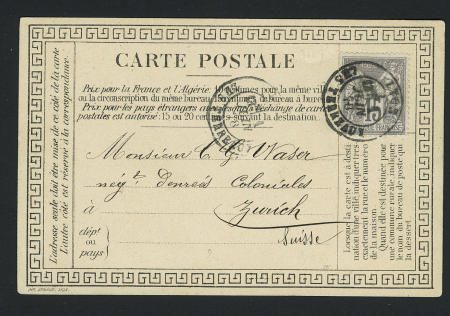 CARTE POSTALE
Prix pour la France et l'Algérie, 10 centimes pour la même ville
ou la circonscription du même bureau, 15 centimes de bureau à bureau.
Prix pour les pays étrangers avec lesquels l'échange de cartes
postales est autorisé: 15 ou 20 centimes suivant la destination.
Monsieur C. G. Waser
négt. Denrées Coloniales
à Zurich
dépt
ou
pays
Suisse
L'adresse seule doit être mise de ce côté de la carte.
L'autre côté est réservé à la correspondance.
Lorsque la carte est à desti-
nation d'une ville, indiquer
exactement la rue et le numéro
de la maison.
Quand elle est destinée pour
une commune rurale, indiquer
le nom du bureau de poste qui
la dessert.
15